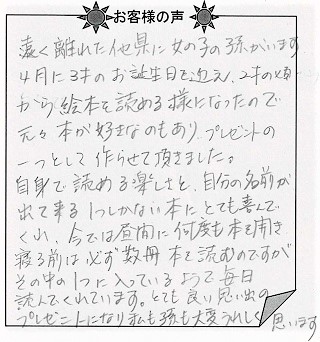 お客様の声
遠く離れた他県に女の子の孫がいます
4月に3才のお誕生日を迎え、2才の頃
から絵本を読める様になったので
元々本が好きなのもあり、プレゼントの
一つとして作らせて頂きました。
自身で読める楽しさと、自分の名前が
出て来る1つしかない本にとても喜んで
くれ、今では昼間に何度も本を開き
寝る前は必ず数冊本を読むのですが
その中の1つに入っているようで毎日
読んでくれています。とても良い思い出の
プレゼントになり私も孫も大変うれしく思います